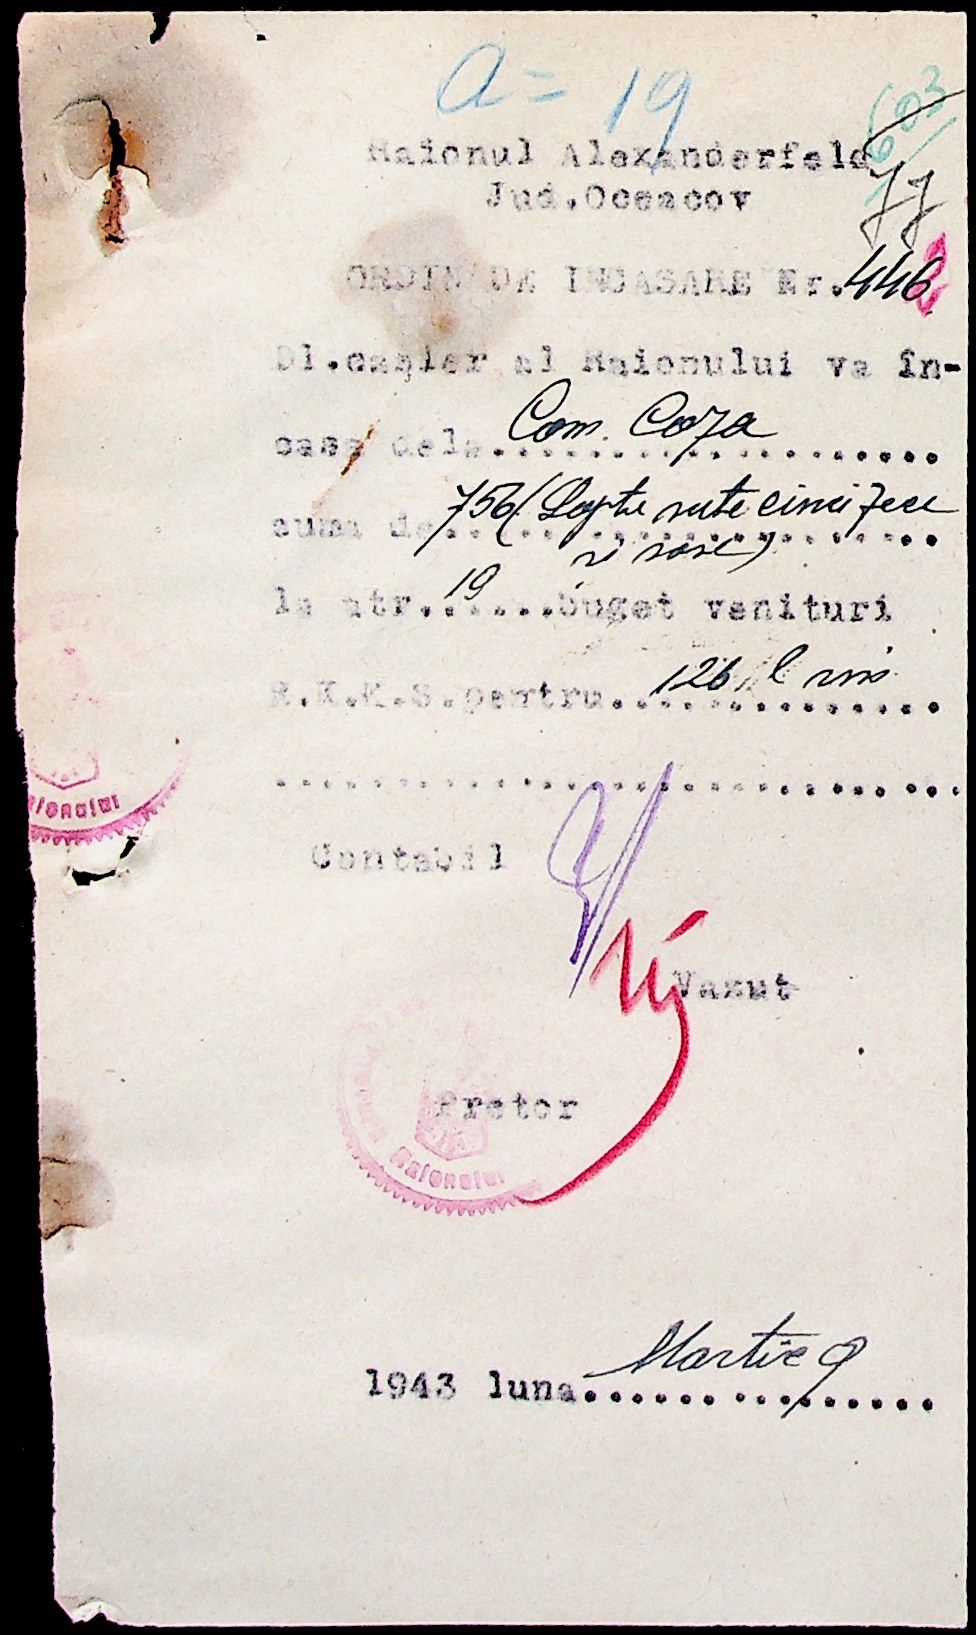 a = 19
603
77
Raionul Alexanderfeld
Jud.Oceacov
ORDIN DE INCASARE Nr.446
Dl.casier al Raionului va în-
casa dela....................
Com. Coza
suma de......................
756 (Șapte sute cinci zece
și șase)
la atr.......buget venituri
19
R.K.K.S.pentru...............
126 l vin
.............................
Raionului
Contabil
Vazut
Pretor
Raionului
1943 luna................
Martie 9